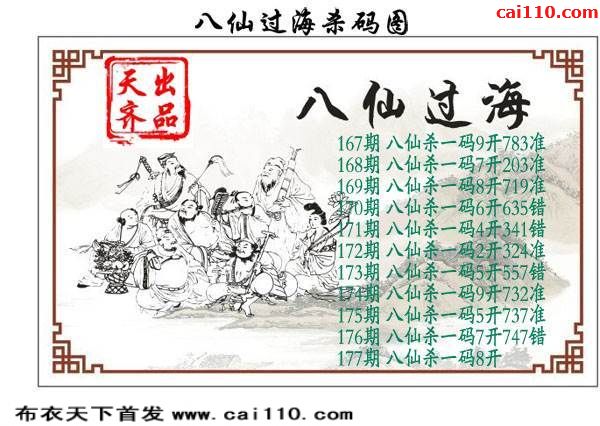 cai110.com
八仙过海杀码图
天齐出品
八仙过海
167期 八仙杀一码9开783准
168期 八仙杀一码7开203准
169期 八仙杀一码8开719准
170期 八仙杀一码6开635错
171期 八仙杀一码4开341错
172期 八仙杀一码2开324准
173期 八仙杀一码5开557错
174期 八仙杀一码9开732准
175期 八仙杀一码5开737准
176期 八仙杀一码7开747错
177期 八仙杀一码8开
布衣天下首发 www.cai110.com